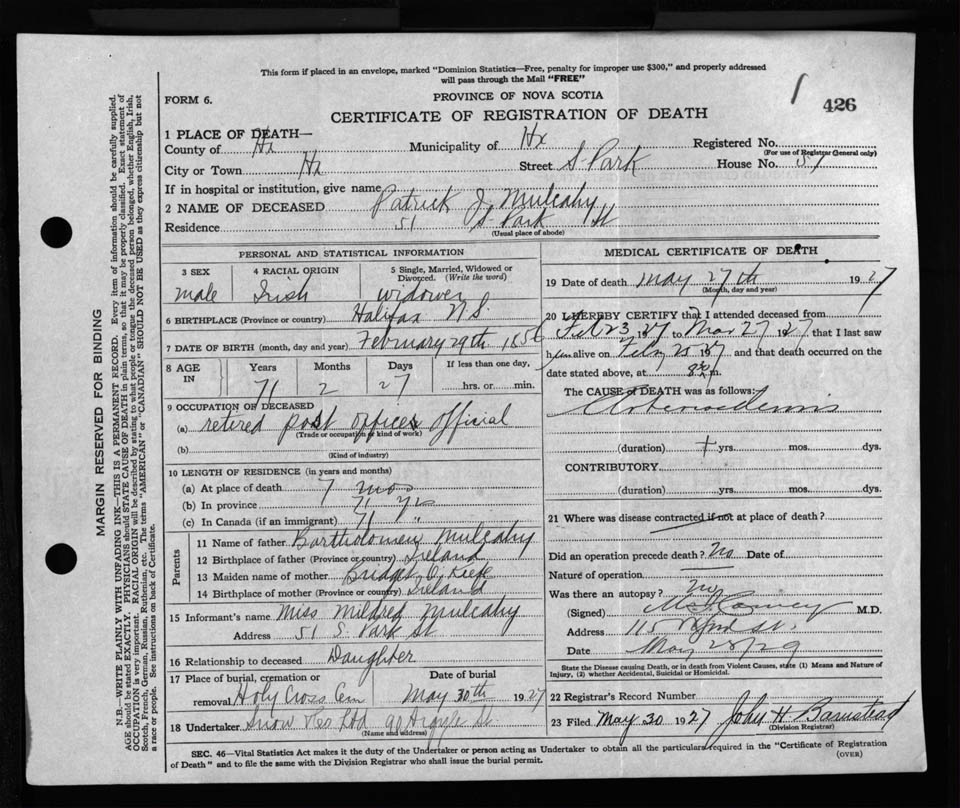 This form if placed in an envelope, marked "Dominion Statistics—Free, penalty for improper use $300," and properly addressed
will pass through the Mail "FREE"
FORM 6.
PROVINCE OF NOVA SCOTIA
426
CERTIFICATE OF REGISTRATION OF DEATH
1 PLACE OF DEATH—
County of Hx Municipality of Hx Registered No.
(For use of Registrar General only)
City or Town Hx Street S-Park House No. 51
If in hospital or institution, give name
2 NAME OF DECEASED Patrick J. Mulcahy
Residence 51 S-Park St
(Usual place of abode)
PERSONAL AND STATISTICAL INFORMATION
3 SEX 4 RACIAL ORIGIN 5 Single, Married, Widowed or Divorced. (Write the word)
male Irish widower
6 BIRTHPLACE (Province or country) Halifax N.S.
7 DATE OF BIRTH (month, day and year) February 29th 1856
8 AGE IN Years Months Days If less than one day,
71 2 27 hrs. or min.
9 OCCUPATION OF DECEASED
(a) retired post office official
(Trade or occupation or kind of work)
(b)
(Kind of industry)
10 LENGTH OF RESIDENCE (in years and months)
(a) At place of death 7 mos
(b) In province 71 yrs
(c) In Canada (if an immigrant) 71 "
Parents
11 Name of father Bartholomew Mulcahy
12 Birthplace of father (Province or country) Ireland
13 Maiden name of mother Bridget O'Kiefe
14 Birthplace of mother (Province or country) Ireland
15 Informant's name Miss Mildred Mulcahy
Address 51 S. Park St
16 Relationship to deceased Daughter
17 Place of burial, cremation or removal Holy Cross Cem Date of burial May 30th 1927
18 Undertaker Snow &Co Ltd 90 Argyle St
(Name and address)
MEDICAL CERTIFICATE OF DEATH
19 Date of death May 27th 1927
(Month, day and year)
20 I HEREBY CERTIFY that I attended deceased from
Feb 23 1927 to Mar 27 1927 that I last saw
him alive on Feby 25 1927 and that death occurred on the
date stated above, at m.
The CAUSE OF DEATH was as follows:
(duration) yrs. mos. dys.
CONTRIBUTORY
(duration) yrs. mos. dys.
21 Where was disease contracted if not at place of death?
Did an operation precede death? No Date of
Nature of operation
Was there an autopsy? no
(Signed) M.D.
Address 115 St.
Date May 28/29
State the Disease causing Death, or in death from Violent Causes, state (1) Means and Nature of
Injury, (2) whether Accidental, Suicidal or Homicidal.
22 Registrar's Record Number
23 Filed May 30 1927 John H Barnstead
(Division Registrar)
SEC. 46—Vital Statistics Act makes it the duty of the Undertaker or person acting as Undertaker to obtain all the particulars required in the "Certificate of Registration
of Death" and to file the same with the Division Registrar who shall issue the burial permit.
(OVER)
MARGIN RESERVED FOR BINDING
N.B.—WRITE PLAINLY WITH UNFADING INK—THIS IS A PERMANENT RECORD. Every item of information should be carefully supplied.
AGE should be stated EXACTLY. PHYSICIANS should STATE CAUSE OF DEATH in plain terms, so that it may be properly classified. Exact statement of
OCCUPATION is very important. RACIAL ORIGIN will be described by stating to what people or tongue the deceased person belonged, whether English, Irish,
Scotch, French, German, Russian, Ruthenian, etc. The terms "AMERICAN" or "CANADIAN" SHOULD NOT BE USED as they express citizenship but not
a race or people. See instructions on back of Certificate.